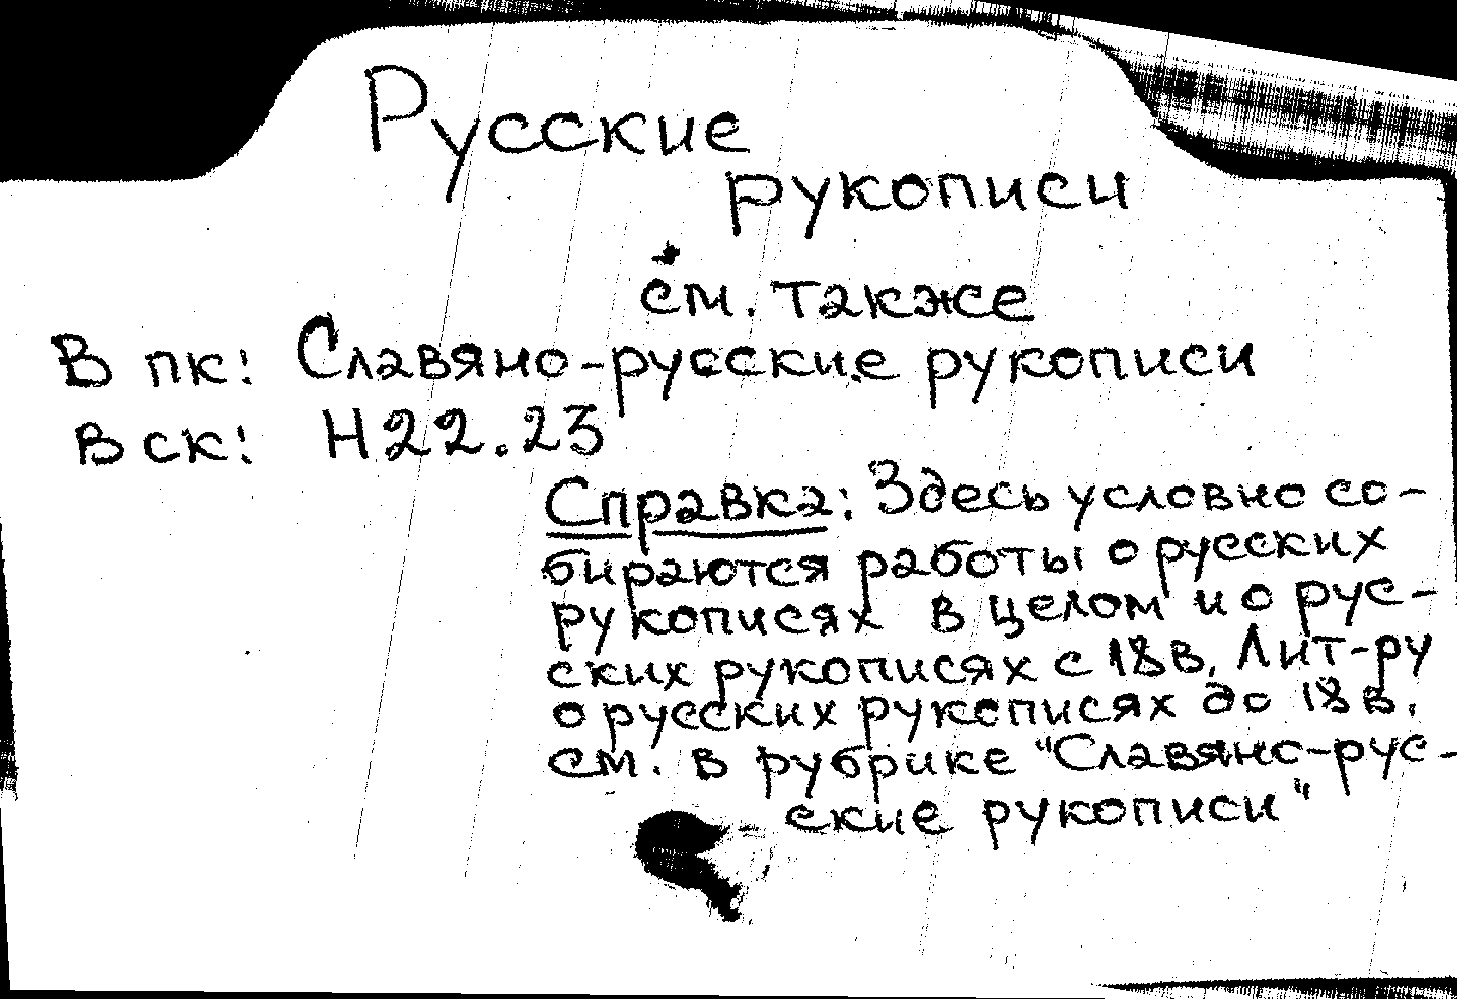 Русские
рукописи
см. также
В пк: Славяно-русские рукописи
В ск: Н22.23
Справка: Здесь условно со-
бираются работы о русских
рукописях в целом и о рус-
ских рукописях с 18 в. Лит-ру
о русских рукописях до 18 в.
см. в рубрике "Славяно-рус-
ские рукописи"